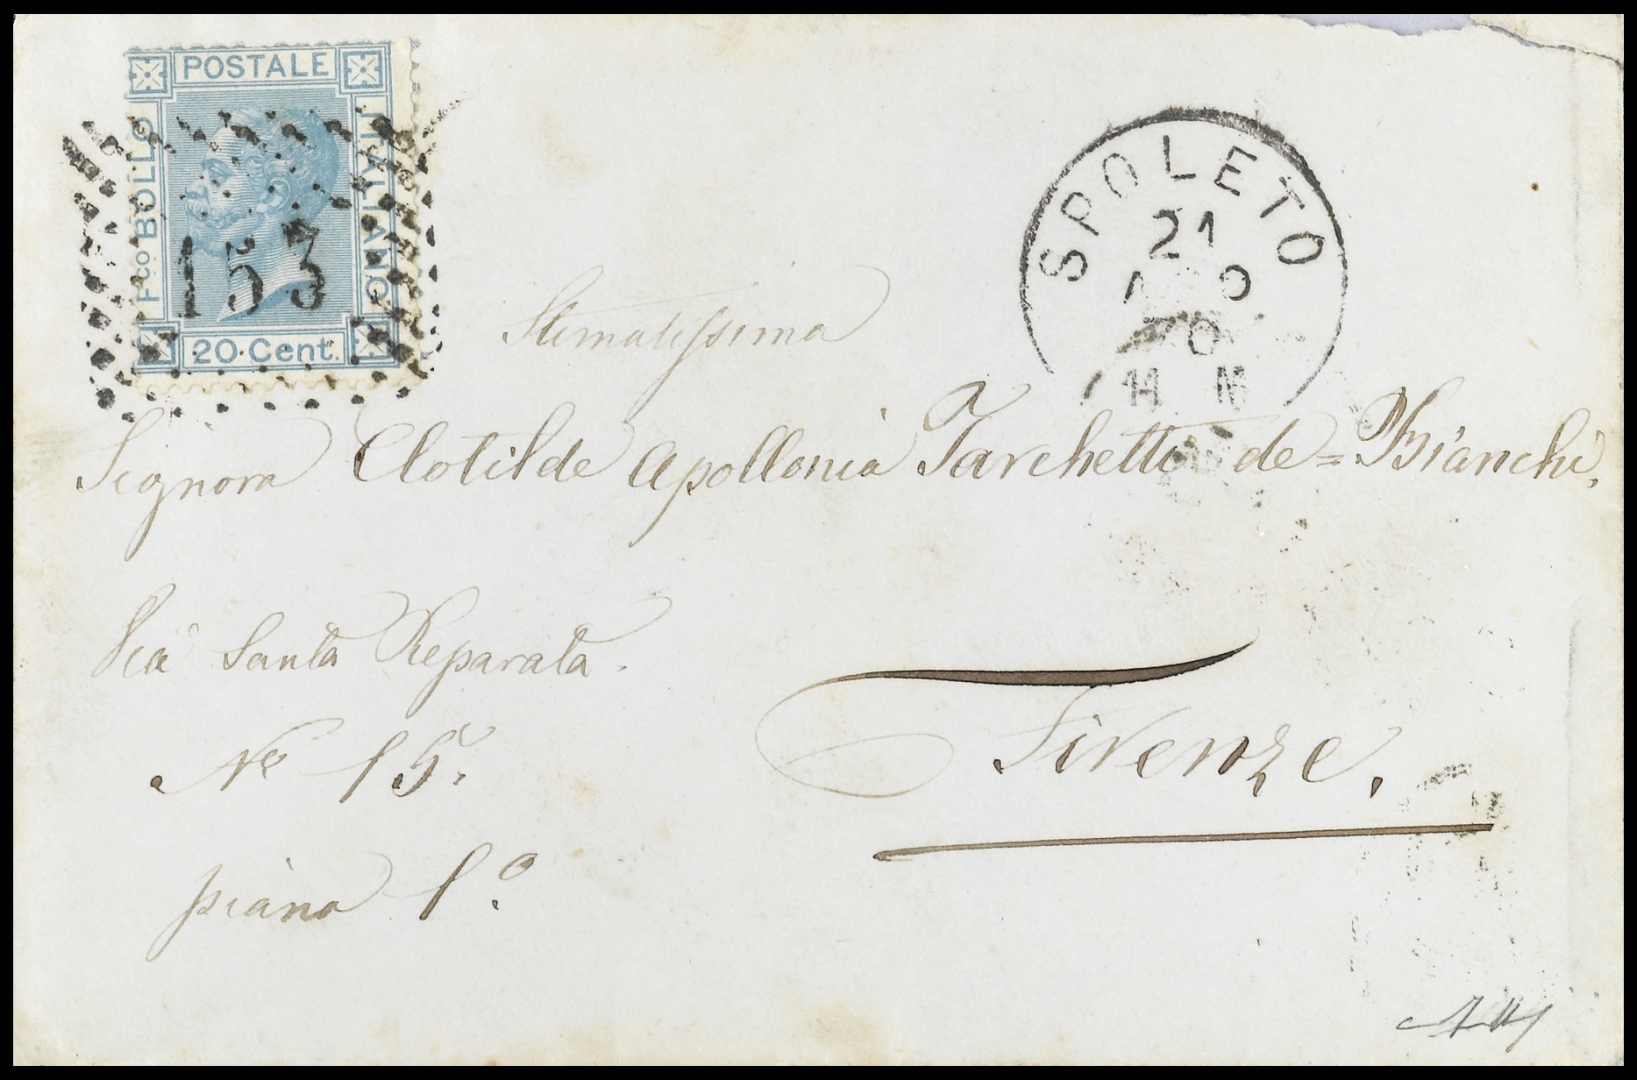 POSTALE
Fco BOLLO
ITALIANO
20 Cent.
153
SPOLETO
21
0
11 M
Stimatissima
Signora Clotilde Apollonia Tarchetti de=Bianchi,
Via Santa Reparata.
No 15.
piano 1.o
Firenze.